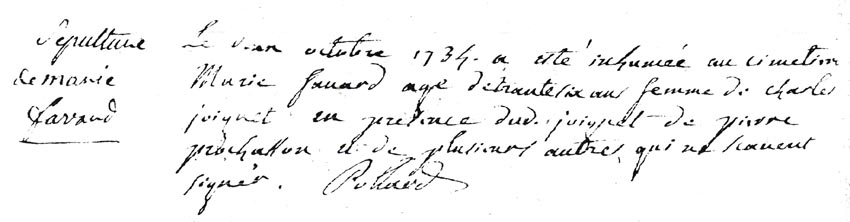 Sepulture
de marie
favard
Le octobre 1734. a esté inhumeé au cimetiere
Marie favard agé de trante six ans femme de charles
joignet en presence dud. joignet de pierre
prochasson et de plusieurs autres qui ne scauent
signer. Pollard